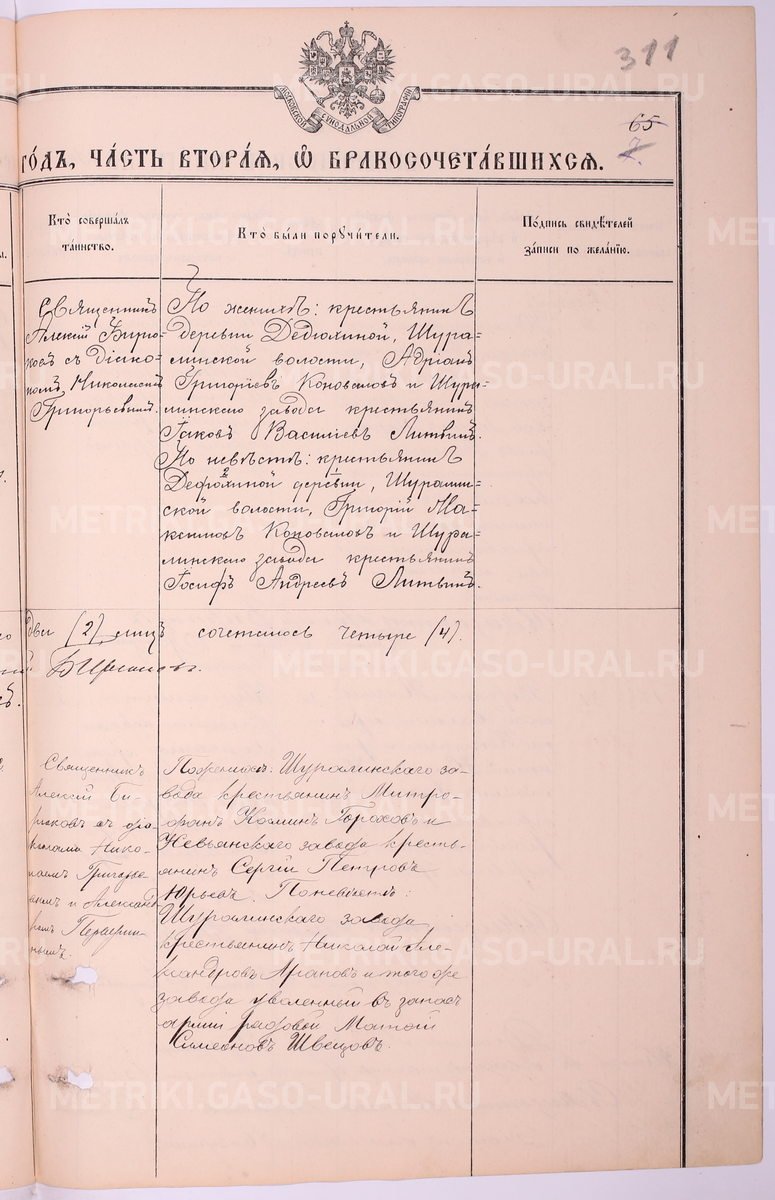 311
МОСКОВСКОЙ СѴНОДАЛЬНОЙ ТИПОГРАФІИ
65
7.
го́дъ, ча́сть втора́я, ѡ҆ бракосочета́вшихся.
Кто̀ соверша́лъ
та́инство.
Кто̀ бы́ли порꙋчи́тели.
По́дпись свидѣ́телей
за́писи по жела́нію.
Священникъ
Алексій Бирю-
ковъ съ діако-
номъ Николаемъ
Григорьевымъ.
По женихѣ: крестьянинъ
деревни Дедюлиной, Шура-
линской волости, Адріанъ
Григоріевъ Коновалов и Шура-
линскаго завода крестьянинъ
Іаковъ Василіевъ Литвинъ.
По невѣстѣ: крестьянинъ
деревни, Шуралин-
ской волости, Григорій Ма-
ксимовъ Коноваловъ и Шура-
линскаго завода крестьянинъ
Іосифъ Андреевъ Литвинъ.
два (2), лицъ сочеталось четыре (4).
Священникъ
Алексій Би-
рюковъ съ діа-
конами Нико-
лаемъ Григорье-
вымъ и Александ-
ромъ
По женихѣ: Шуралинскаго за-
вода крестьянинъ Митро-
фанъ Козминъ Гороховъ и
Невьянскаго завода кресть-
янинъ Сергій Петровъ
Юрьевъ. По невѣстѣ:
Шуралинскаго завода
крестьянинъ Николай Але-
ксандровъ Араповъ и того же
завода уволенный въ запасъ
арміи рядовой Матѳій
Симеоновъ Швецовъ.
METRIKI.GASO-URAL.RU